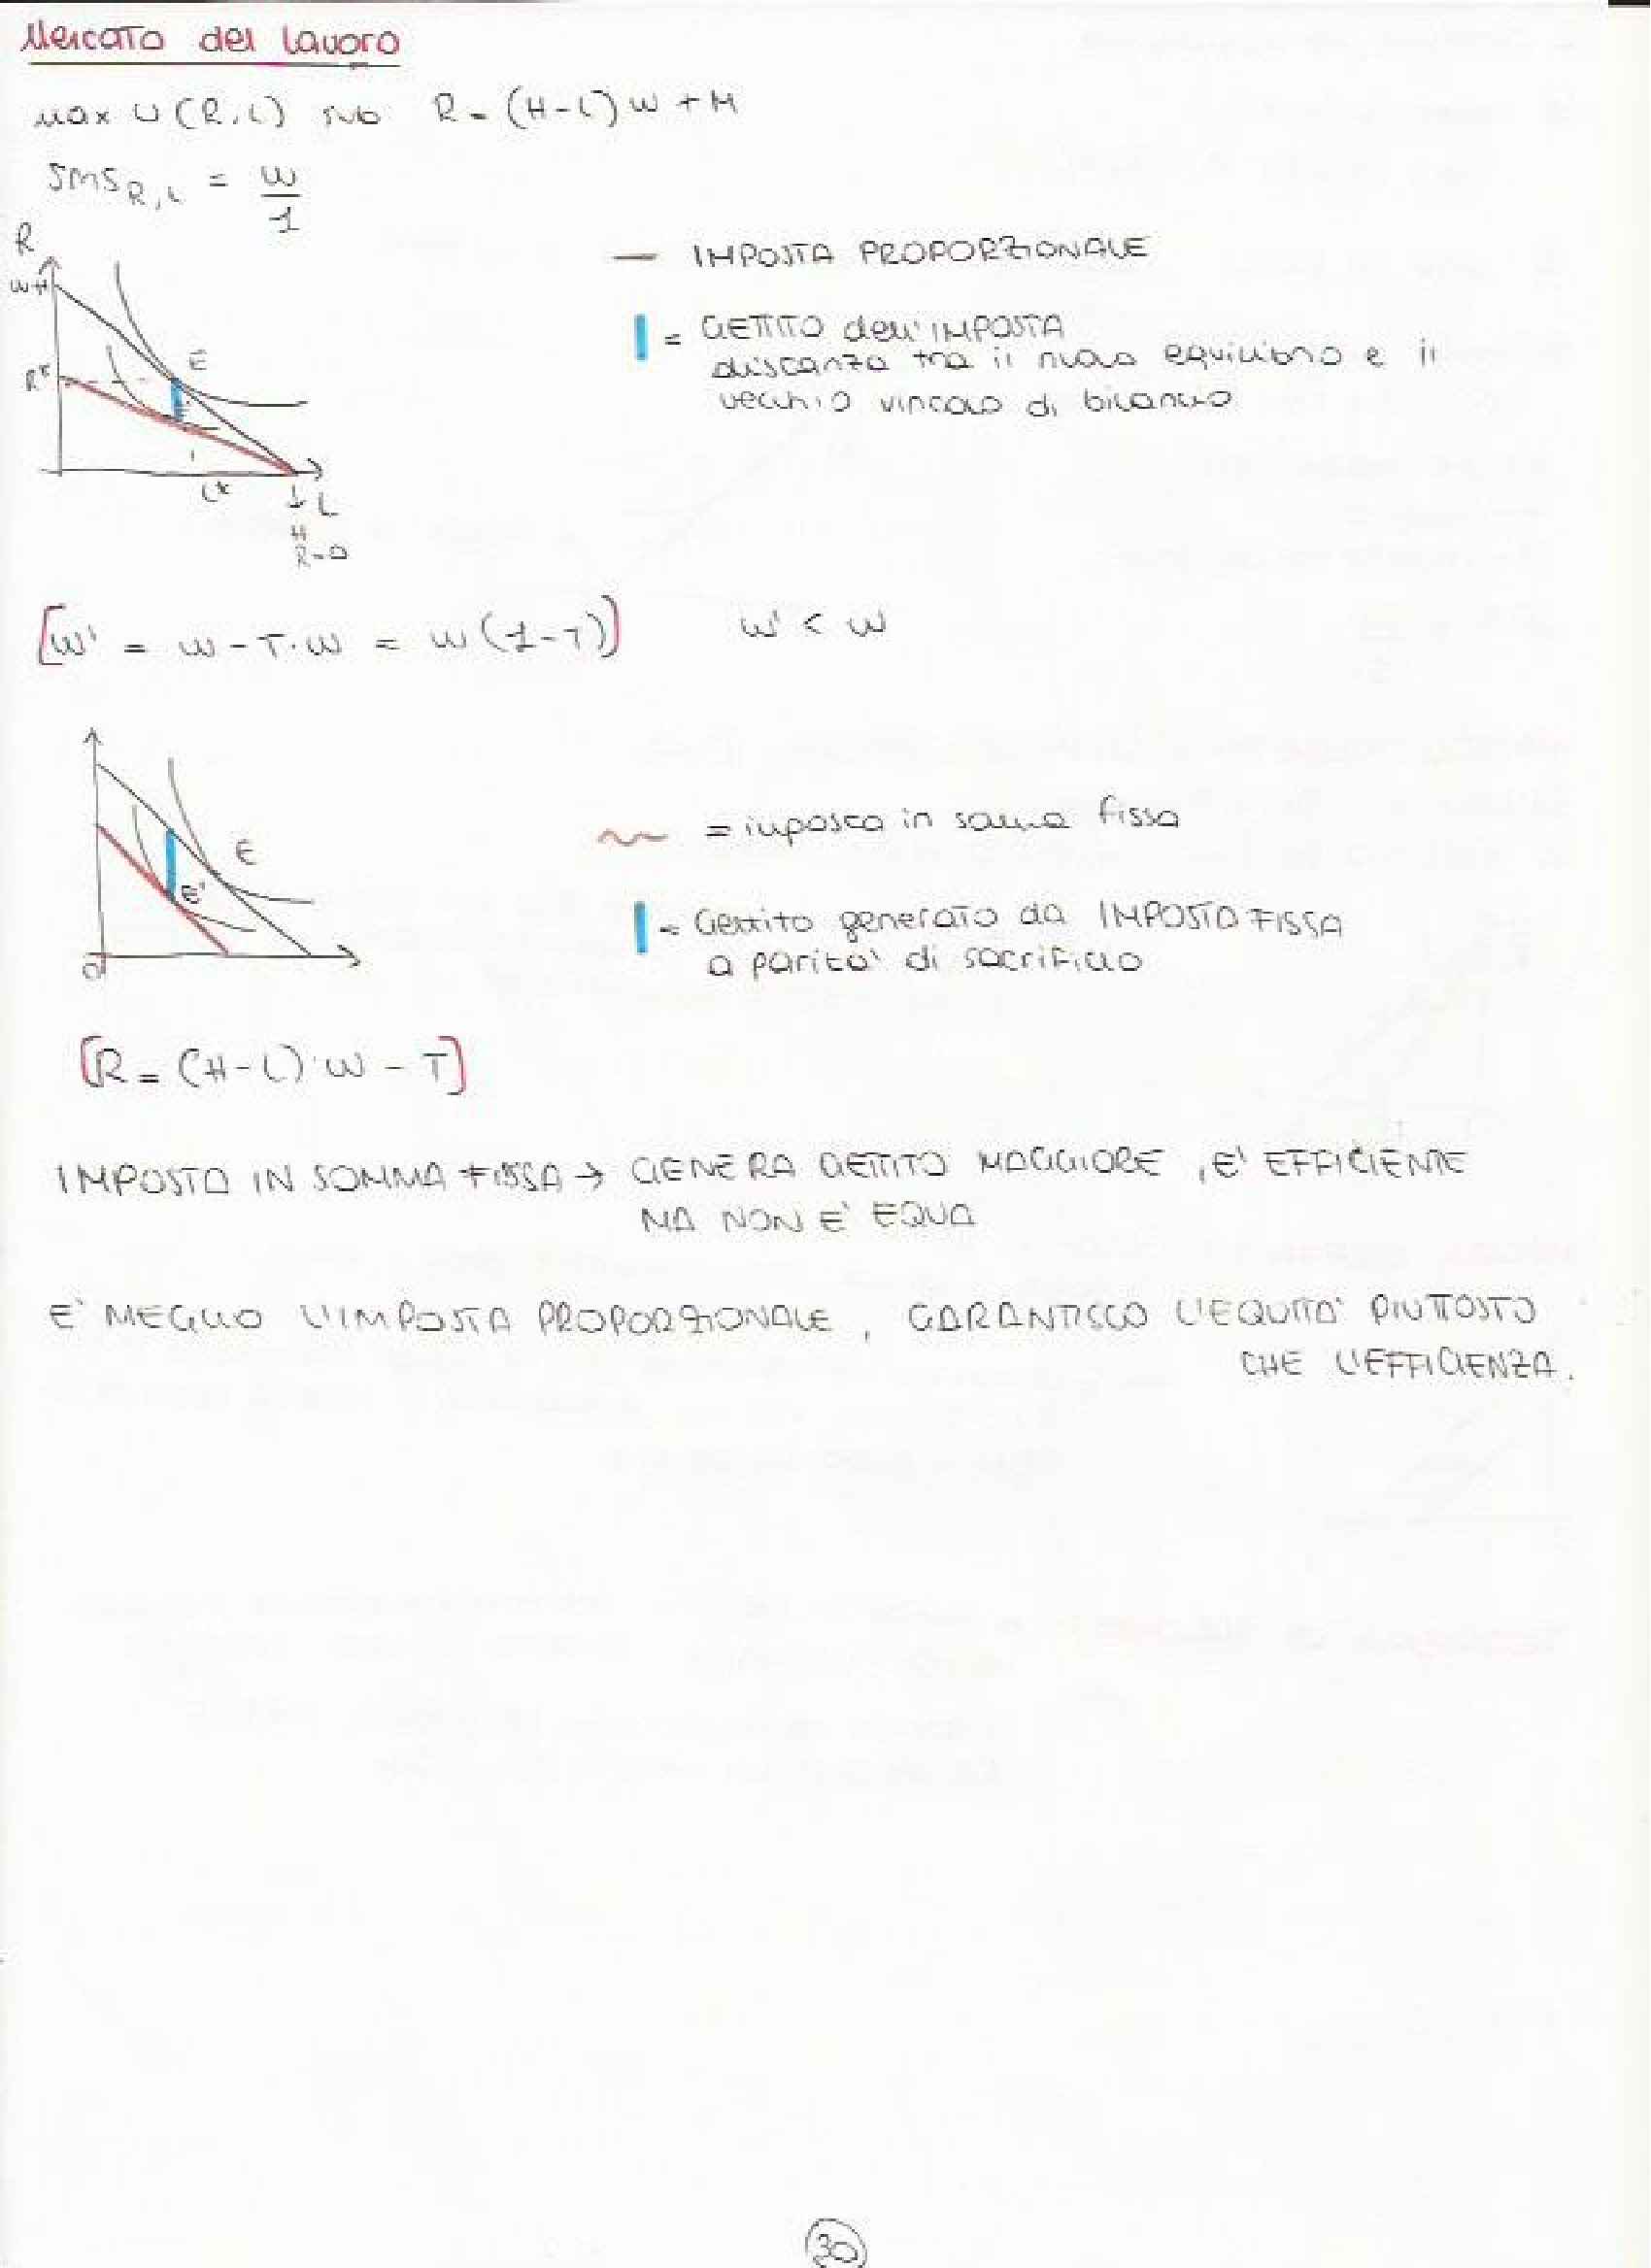 Mercato del lavoro
max U (R, L) sub R = (H-L) w + M
SMS R, L = w
1
R
wH
E
R*
E'
L*
L
H
R=0
— IMPOSTA PROPORZIONALE
= GETTITO dell'IMPOSTA
distanza tra il nuovo equilibrio e il
vecchio vincolo di bilancio
[w' = w - T · w = w (1-T)] w' < w
E
E'
0
= imposta in somma fissa
= Gettito generato da IMPOSTA FISSA
a parita' di sacrificio
[R = (H-L) · w - T]
IMPOSTA IN SOMMA FISSA → GENERA GETTITO MAGGIORE, E' EFFICIENTE
MA NON E' EQUA
E' MEGLIO L'IMPOSTA PROPORZIONALE, GARANTISCO L'EQUITA' PIUTTOSTO
CHE L'EFFICIENZA.
30